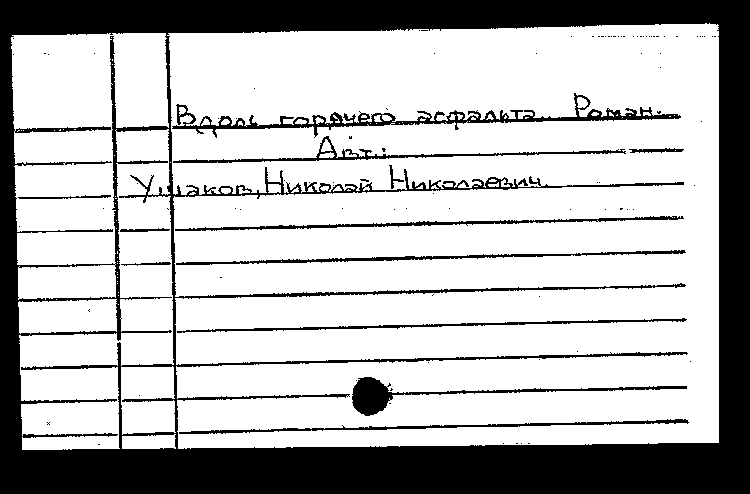 Вдоль горячего асфальта. Роман.
Авт.:
Ушаков, Николай Николаевич.